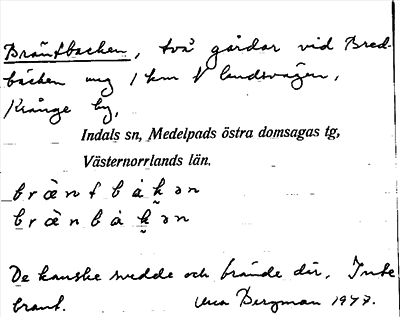 Bräntbacken, två gårdar vid Bred-
bäcken ung 1 km N landsvägen,
Krånge by,
Indals sn, Medelpads östra domsagas tg,
Västernorrlands län.
bræ̀ntbákən
bræ̀nbákən
De kanske svedde och brände där. Inte
brant. Bergman 1947.